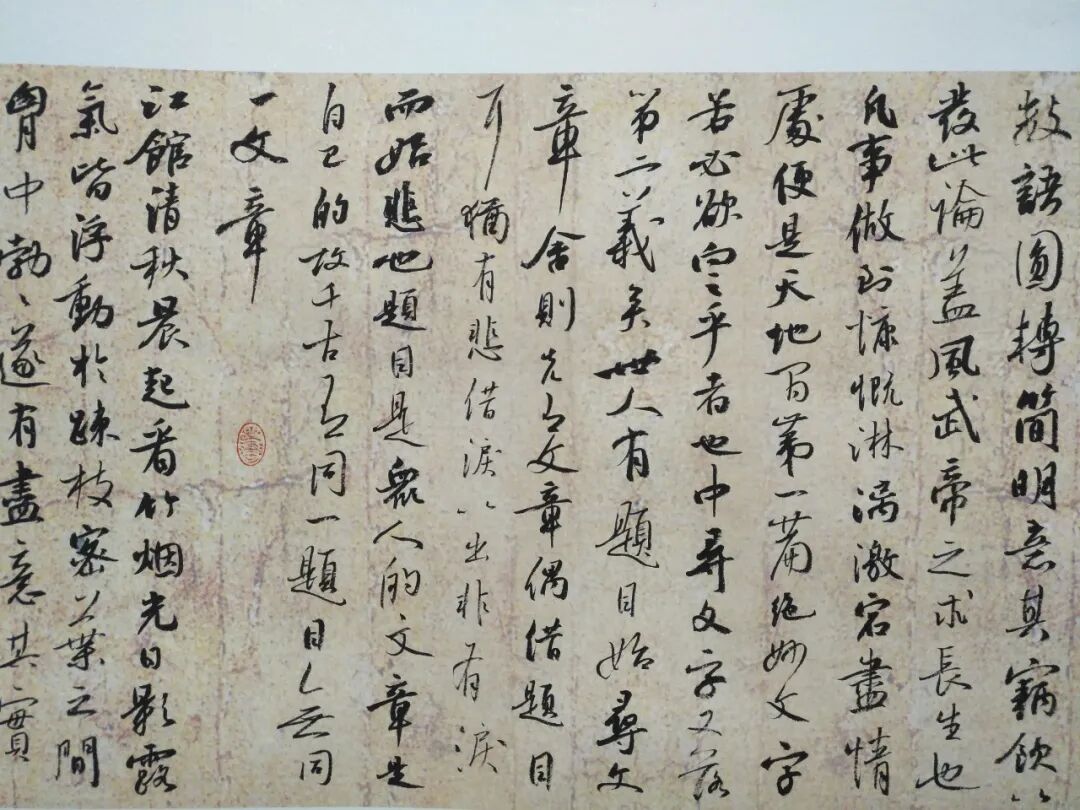 數語圓轉簡明意其竊飲以
發此論蓋風武帝之求長生也
凡事做到慷慨淋漓激宕盡情
處便是天地間第一篇絕妙文字
若必欲向之乎者也中尋文字又落
第二義矣世人有題目始尋文
章舍則先有文章偶借題目
耳猶有悲借淚以出非有淚
而始悲也題目是眾人的文章是
自己的故千古有同一題目無同
一文章
江館清秋晨起看竹烟光日影露
氣皆浮動於疎枝密葉之間
胷中勃〻遂有畫意其實